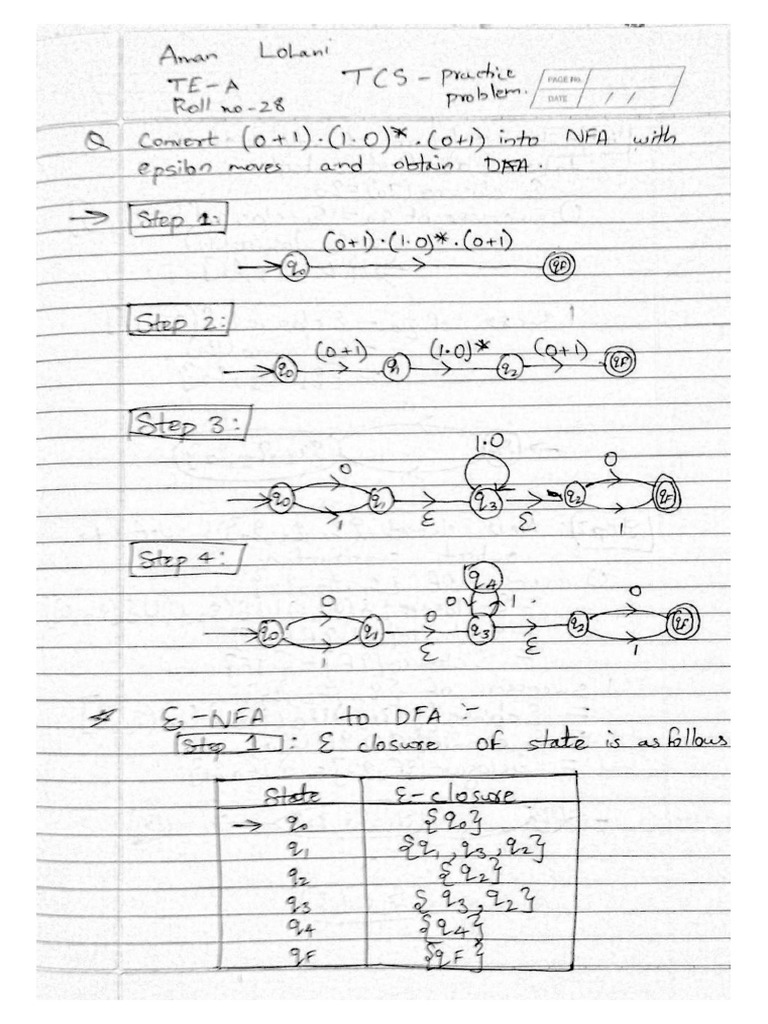 Aman Lohani
TE-A TCS - practice
Roll no-28 problem.
PAGE No.
DATE / /
Q Convert (0+1)·(1·0)*·(0+1) into NFA with
epsilon moves and obtain DFA.
→ Step 1:
(0+1)·(1·0)*·(0+1)
q0 qF
Step 2:
(0+1) (1·0)* (0+1)
q0 q1 q2 qF
Step 3:
1·0
0 0
q0 q1 q3 q2 qF
1 ε ε 1
Step 4:
q4
0 0 0 1 0
q0 q1 q3 q2 qF
1 ε ε 1
* ε-NFA to DFA :-
Step 1 : ε closure of state is as follows
State ε-closure
→ q0 {q0}
q1 {q1, q3, q2}
q2 {q2}
q3 {q3, q2}
q4 {q4}
qF {qF}